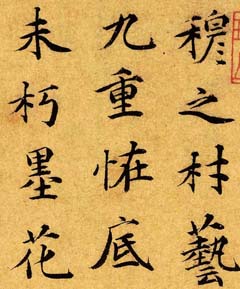 穆之村藝
九重恠底
未朽墨花